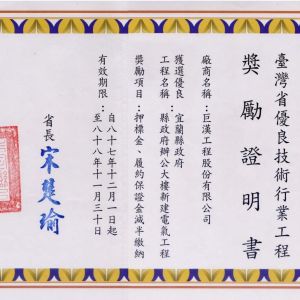 臺灣省優良技術行業工程
獎勵證明書
廠商名稱：巨漢工程股份有限公司
獲選優良
工程名稱：宜蘭縣政府
縣政府辦公大樓新建電氣工程
獎勵項目：押標金、履約保證金減半繳納
有效期限：自八十七年十二月一日起
至八十八年十一月三十日
省長 宋楚瑜